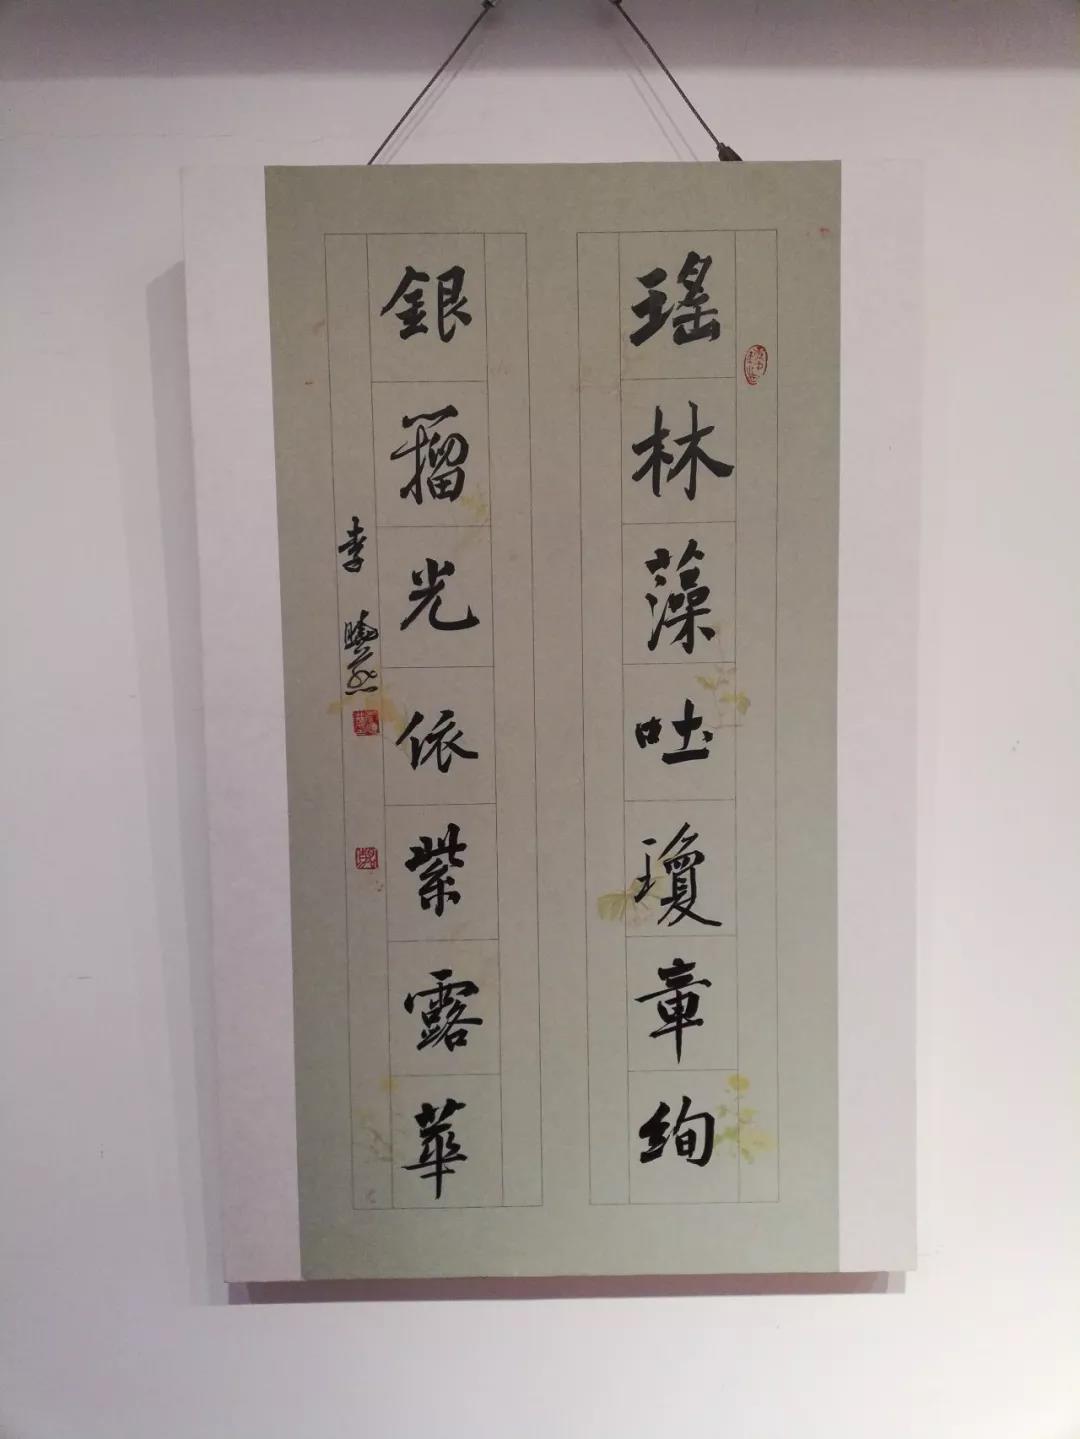 瑤林藻吐瓊章絢
銀籀光依紫露華
李曉燕